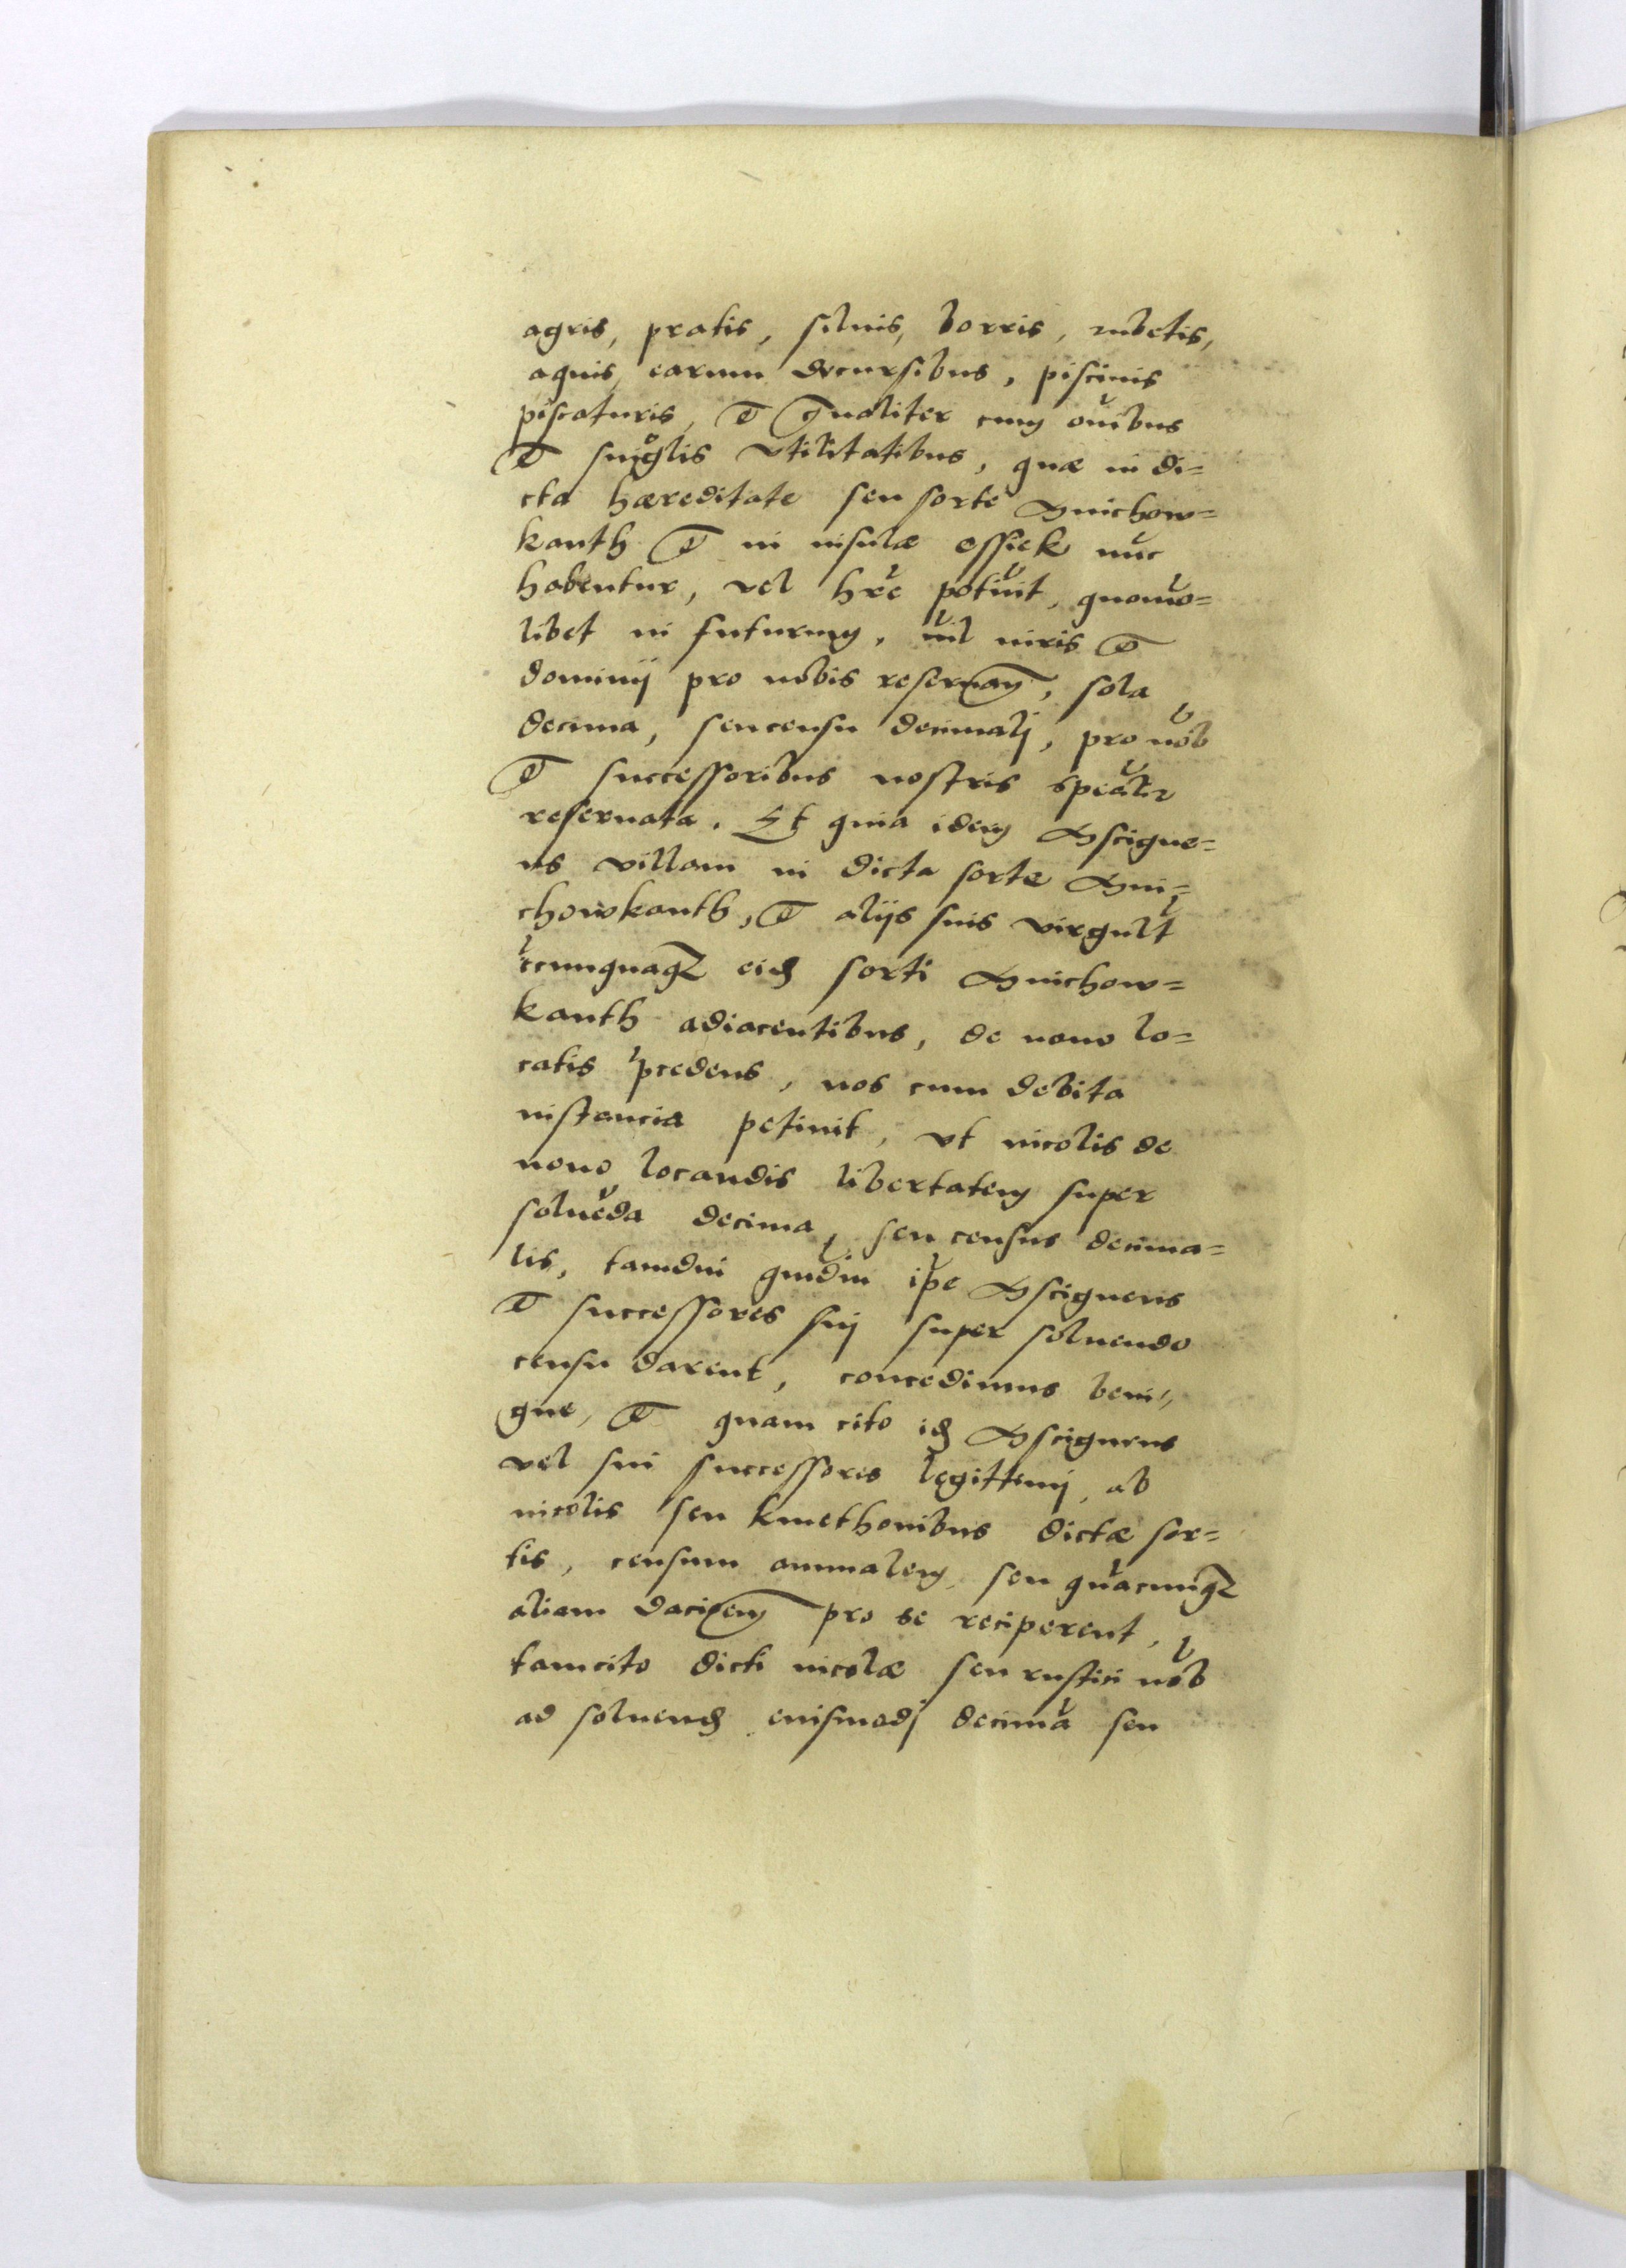 agris, pratis, siluis, borris, rubetis,
aquis, earum decursibus, piscinis
piscaturis, et gnaliter cum oı̃bus
et singlis vtilitatibus, quæ in di=
cta hæreditate seu sorte Gnichow=
kanth et in insulæ ossiek nũc
habentur, vel hr̃e potũit, quomo=
libet in futurum, nil iuris et
dominij pro nobis reseruan, sola
decima, seu censu decimalj, pro nob̃
et successoribus nostris speciãlr
reseruata. Et quia idem Sscigne=
us villam in dicta sorte Gni=
chowkanth, et alijs suis virgult̃
c̃cumquaqꝫ eid sorti Gnichow=
kanth adiacentibus, de nouo lo=
catis p̃cedens, nos cum debita
instancia petiuit, vt incolis de
nouo locandis libertatem super
soluẽda decima, seu census decima=
lis, tamdiu qm̃diu ip̃e Sscigneus
et successores sui super soluendo
censu darent, concedimus beni=
gne, et quam cito id Sscigneus
vel sui successores legittimi, ab
incolis seu kmethonibus dictæ sor=
tis, censum annualem, seu quãcumqꝫ
aliam dacioem pro se reciperent,
tamcito dicti incolæ seu rustici nob̃
ad soluend euismodj decimã seu